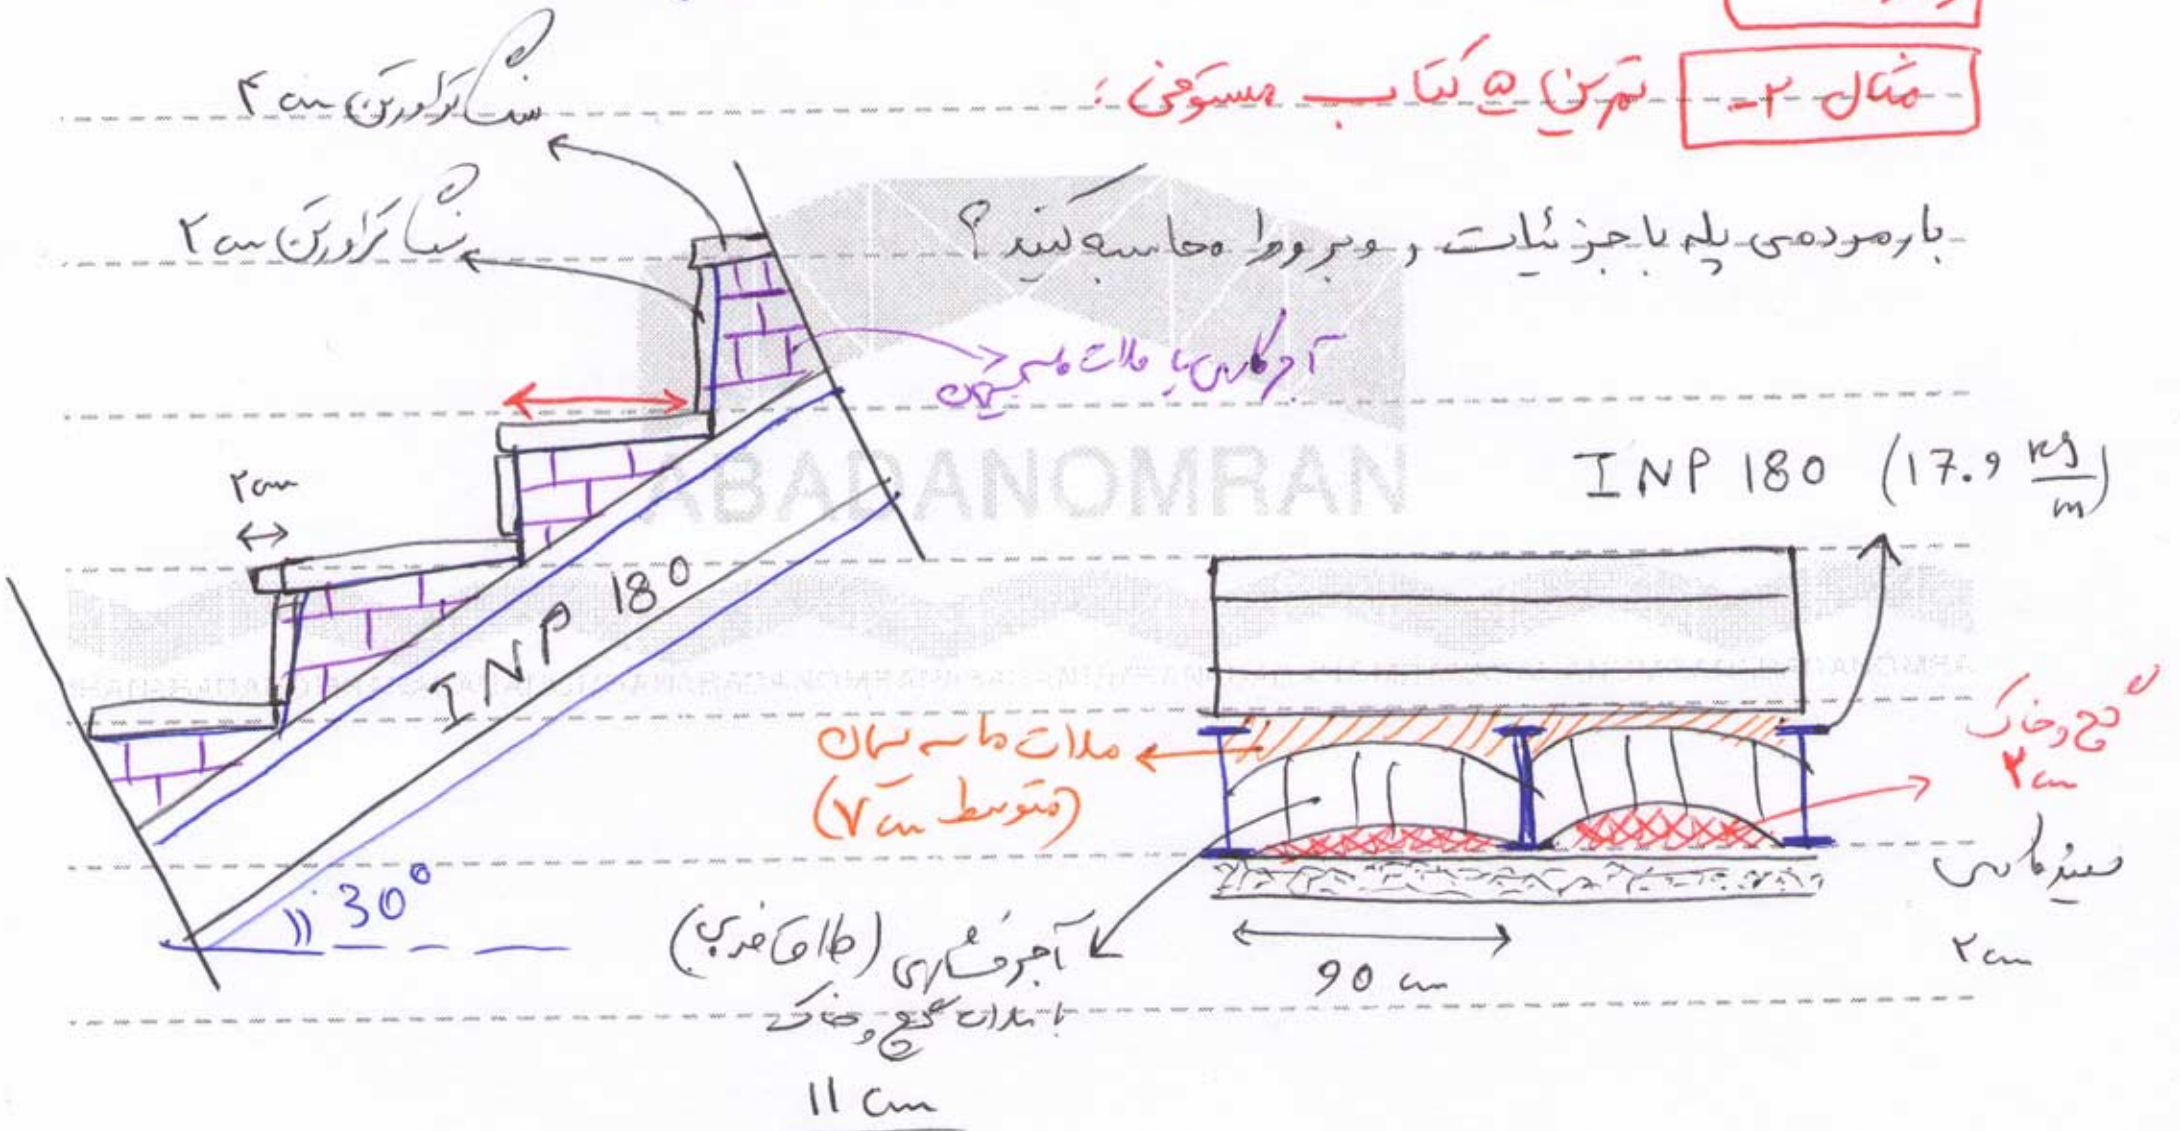 مثال ۲-
تمرین ۵ کتاب مستوفی :
بار مرده‌ی پله با جزئیات روبرو را محاسبه کنید ؟
سنگ تراورتن ۴ cm
سنگ تراورتن ۲ cm
آجرکاری با ملات ماسه سیمان
۲ cm
ABADANOMRAN
INP 180 (17.9 kg/m)
INP 180
30°
ملات ماسه سیمان
(متوسط ۷ cm)
گچ و خاک
۲ cm
سفیدکاری
۲ cm
آجر فشاری (طاق ضربی)
با ملات گچ و خاک
11 cm
90 cm